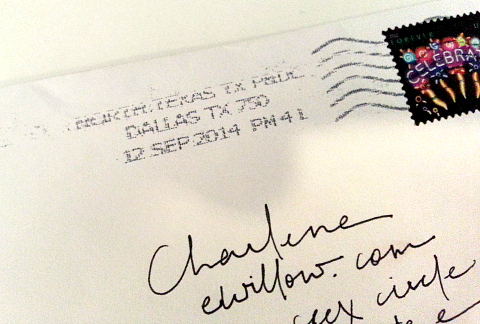 FOREVER
CELEBRA
NORTH TEXAS TX P&DC
DALLAS TX 750
12 SEP 2014 PM 4 L
Charlene
elvillow.com
circle